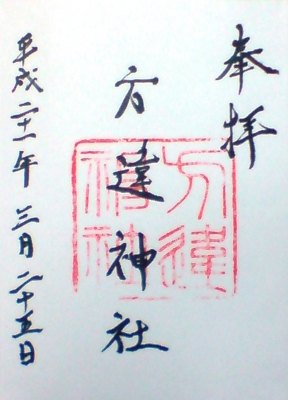 奉拝
方違神社
方違神社
平成二十一年三月二十五日